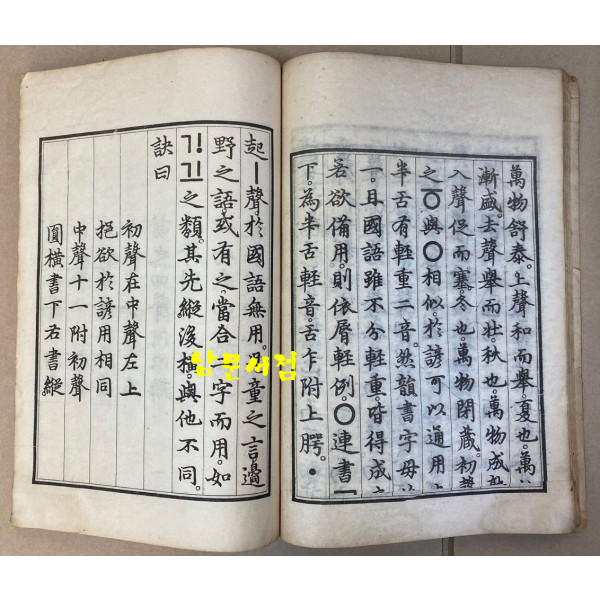 萬物舒泰。上聲和而擧。夏也。萬
漸盛。去聲擧而壯。秋也。萬物成
入聲促而塞。冬也。萬物閉藏。初
之ㆆ與ㅇ相似。於諺可以通用
半舌有輕重二音。然韻書字母
一。且國語雖不分輕重。皆得成
若欲備用。則依脣輕例。ㅇ連書
下。為半舌輕音。舌乍附上腭。ㆍ
起ㅣ聲。於國語無用。童之言。邊
野之語。或有之。當合字而用。如
ᄀᆝᄀᆜ之類。其先縱後橫。與他不同。
訣曰
初聲在中聲左上
挹欲於諺用相同
中聲十一附初聲
圓橫書下右書縱
남문서점